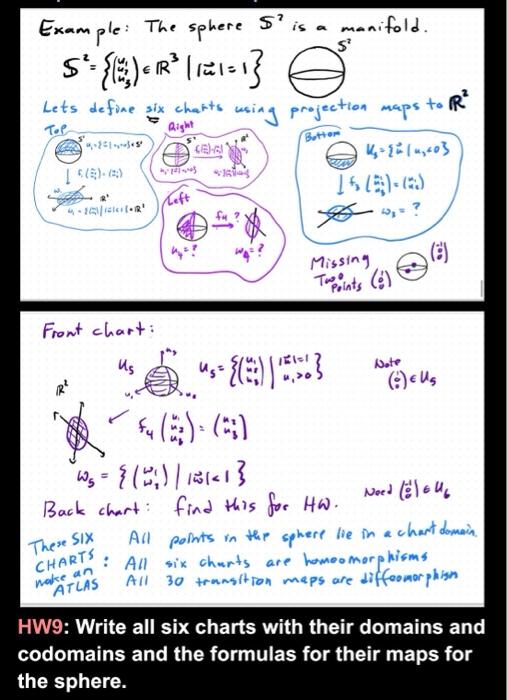 Example: The sphere S² is a manifold.
S² = {(u₁ u₂ u₃) ∈ ℝ³ | |u⃗| = 1}
S²
Lets define six charts using projection maps to ℝ²
Top
S²
ℝ²
Right
S²
ℝ²
Left
f₄ ?
u₄ = ?
w₄ = ?
Bottom
U₃ = {u⃗ | u₃<0}
f₃ (u₁ u₂ u₃) = (u₁ u₂)
w₃ = ?
Missing
Two
Points
Front chart:
U₅
U₅ = {(u₁ u₂ u₃) | |u⃗|=1 u₁>0}
Note
(1 0 0) ∈ U₅
ℝ²
f₄ (u₁ u₂ u₃) = (u₂ u₃)
W₅ = {(w₁ w₂) | |w⃗|<1}
Back chart: find this for HW.
Need (-1 0 0) ∈ U₆
These SIX
CHARTS :
make an
ATLAS
All points in the sphere lie in a chart domain.
All six charts are homeomorphisms
All 30 transition maps are diffeomorphism
HW9: Write all six charts with their domains and
codomains and the formulas for their maps for
the sphere.